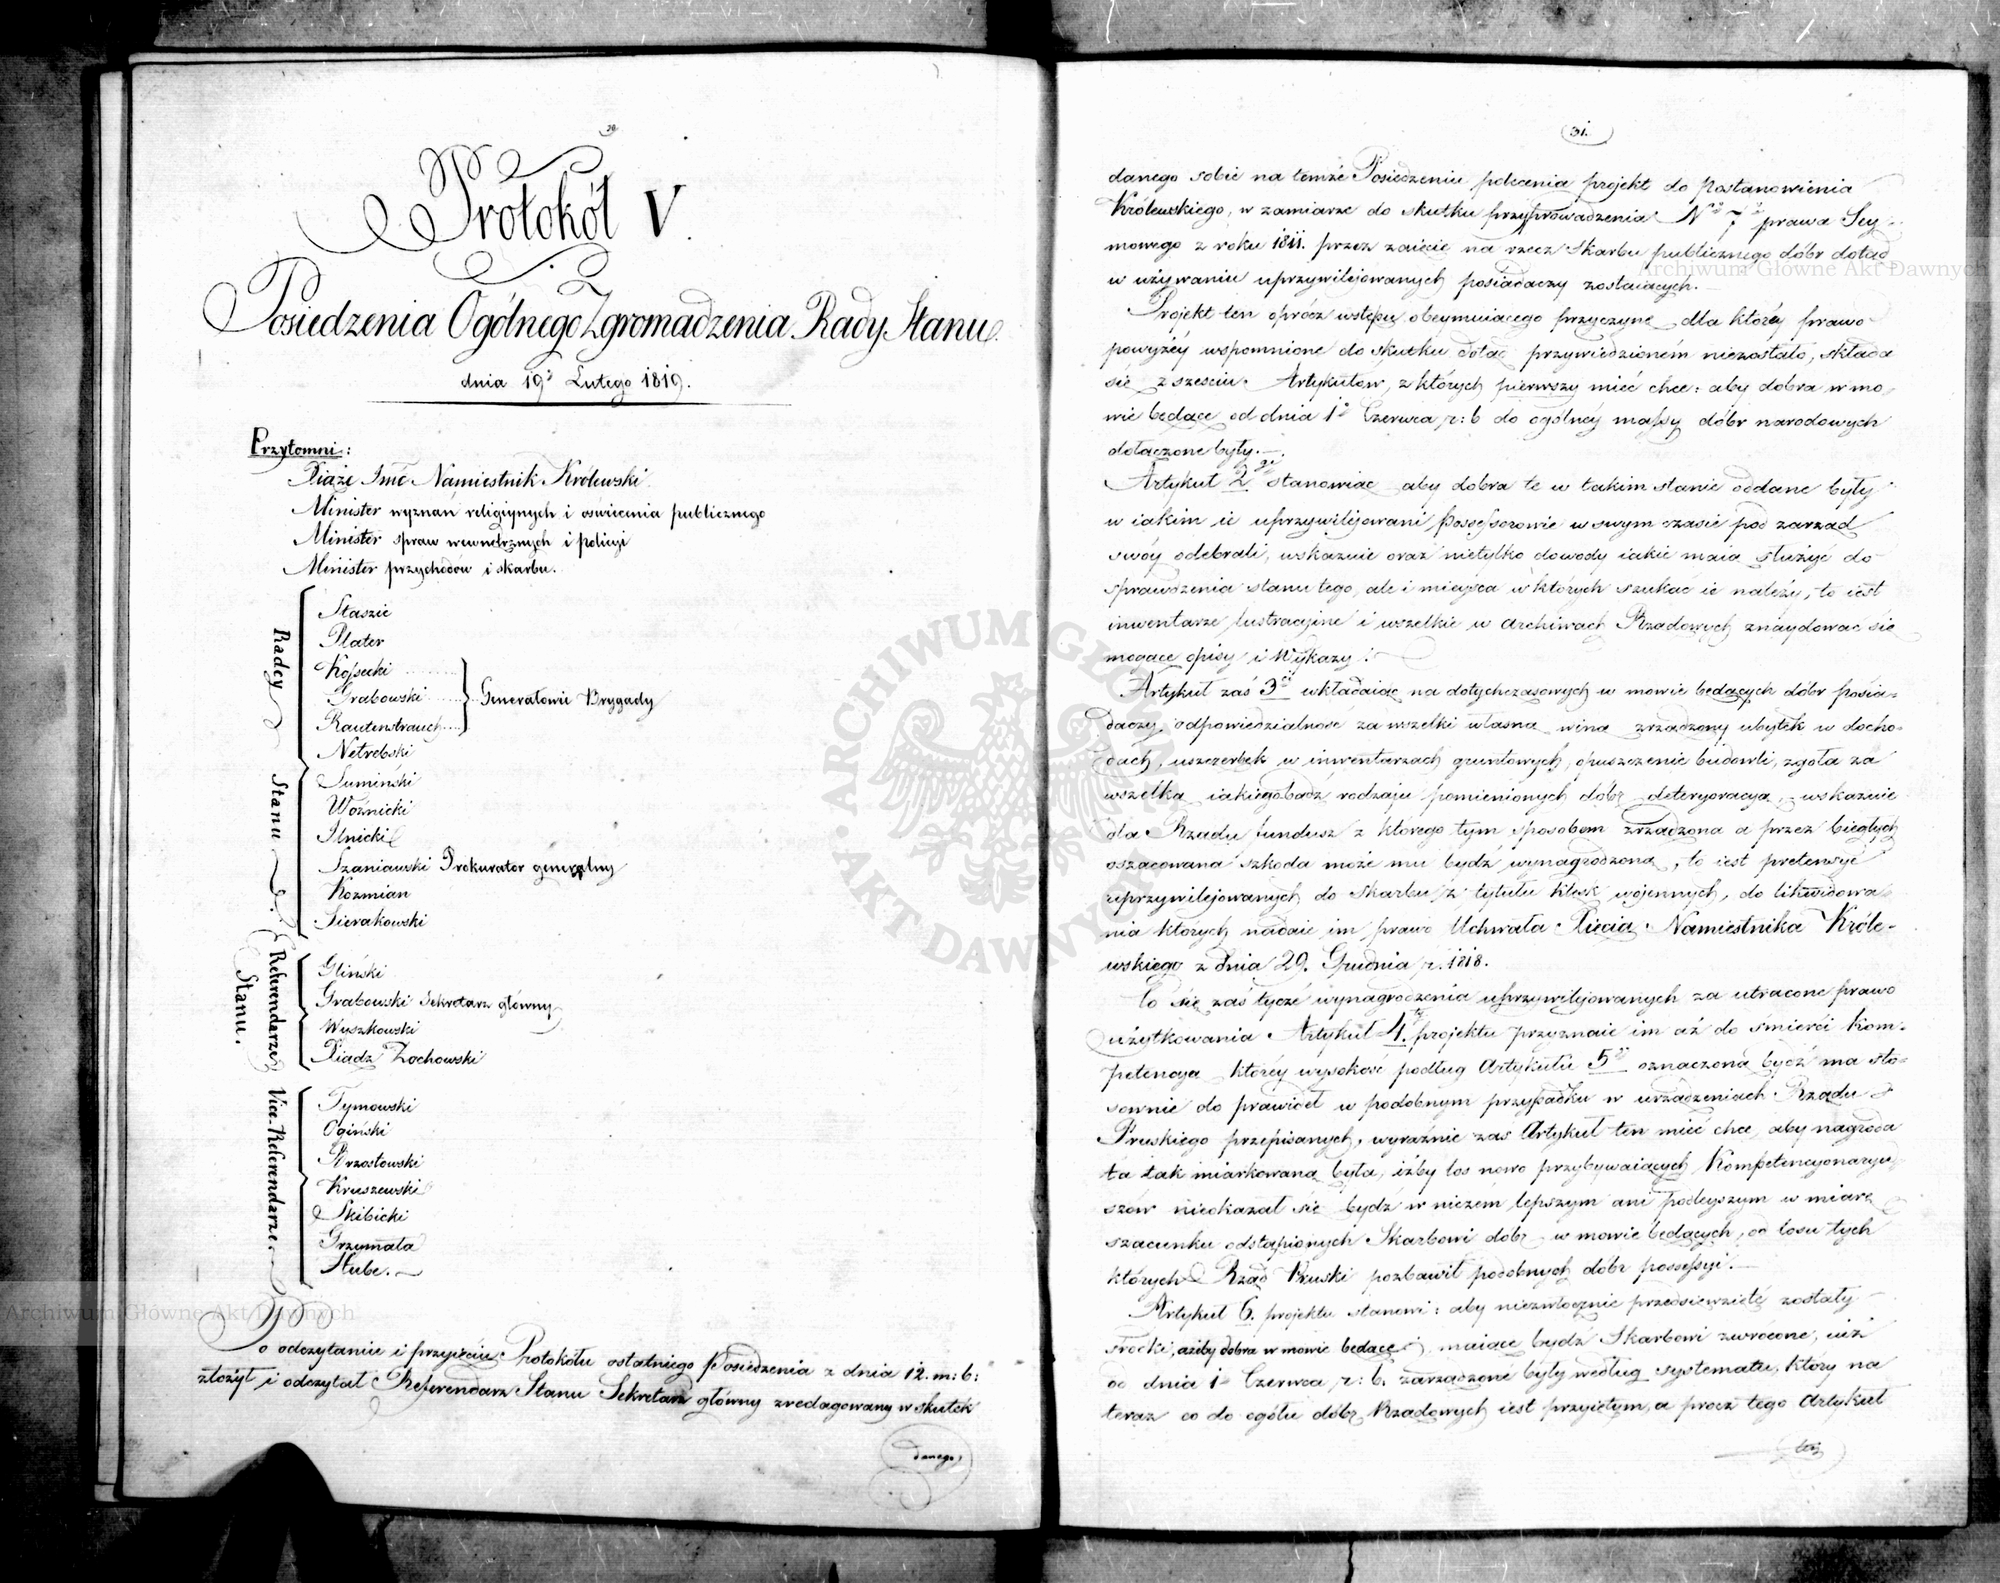 Protokół V.
Posiedzenia Ogólnego Zgromadzenia Rady Stanu.
dnia 19º Lutego 1819.
Przytomni:
Xiąże Jmć Namiestnik Królewski.
Minister wyznań religijnych i oświecenia publicznego
Minister spraw wewnętrznych i policyi
Minister przychodów i skarbu.
Radcy Stanu
Staszic
Plater
Kossecki
Grabowski
Rautenstrauch
Generałowie Brygady
Netrebski
Sumiński
Woźnicki
Ilnicki
Szaniawski Prokurator generalny
Kozmian
Sierakowski
Referendarze Stanu.
Gliński
Grabowski Sekretarz główny
Wyszkowski
Xiądz Zochowski
Vice-Referendarze
Tymowski
Ogiński
Brzostowski
Kruszewski
Skibicki
Grzymała
Hube.
Po odczytaniu i przyjęciu Protokółu ostatniego Posiedzenia z dnia 12. m: b:
złożył i odczytał Referendarz Stanu Sekretarz główny zredagowany w skutek
danego
31.
danego sobie na temże Posiedzeniu polecenia projekt do Postanowienia
Królewskiego, w zamiarze do skutku przyprowadzenia Nº 7º prawa Sey-
mowego z roku 1811. przez zaięcie na rzecz Skarbu publicznego dóbr dotąd
w używaniu uprzywilejowanych posiadaczy zostaiących.
Projekt ten oprócz wstępu obeymuiącego przyczynę dla którey prawo
powyżey wspomnione do skutku dotąd przywiedzionem niezostało, składa
się z sześciu Artykułów, z których pierwszy mieć chce: aby dobra w mo-
wie będące od dnia 1º Czerwca r: b do ogólney massy dóbr narodowych
dołączone były.
Artykuł 2gi stanowiąc aby dobra te w takim stanie oddane były
w iakim ie uprzywilejowani Possessorowie w swym czasie pod zarząd
swóy odebrali, wskazuie oraz nietylko dowody iakie maią służyć do
sprawdzenia stanu tego, ale i miejsca w których szukać ie należy, to iest
inwentarze lustracyjne i wszelkie w Archiwach Rządowych znaydować się
mogące opisy i Wykazy.
Artykuł zaś 3ci wkładaiąc na dotychczasowych w mowie będących dóbr posia-
daczy odpowiedzialność za wszelki własną winą zrządzony ubytek w docho-
dach, uszczerbek w inwentarzach gruntowych, opuszczenie budowli, zgoła za
wszelką iakiegobądz rodzaju pomienionych dóbr deteryoracyą, wskazuie
dla Rządu fundusz z którego tym sposobem zrządzona a przez biegłych
oszacowana szkoda może mu bydź wynagrodzona, to iest pretensye
uprzywilejowanych do Skarbu z tytułu klęsk wojennych, do likwidowa-
nia których nadaie im prawo Uchwała Xięcia Namiestnika Króle-
wskiego z dnia 29. Grudnia r. 1818.
Co się zaś tycze wynagrodzenia uprzywilejowanych za utracone prawo
użytkowania Artykuł 4ty projektu przyznaie im aż do śmierci Kom-
petencyą którey wysokość podług Artykułu 5º oznaczoną bydź ma sto-
sownie do prawideł w podobnym przypadku w urządzeniach Rządu
Pruskiego przepisanych, wyraźnie zaś Artykuł ten mieć chce, aby nagroda
ta tak miarkowaną była, iżby los nowo przybywaiących Kompetencyonaryu-
szów nieokazał się bydź w niczem lepszym ani podleyszym w miarę
szacunku odstąpionych Skarbowi dóbr w mowie będących, od losu tych
których Rząd Pruski pozbawił podobnych dóbr possessyi.
Artykuł 6. projektu stanowi: aby niezwłocznie przedsięwzięte zostały
środki, ażeby dobra w mowie będące, maiące bydź Skarbowi zwrócone, iuż
od dnia 1º Czerwca r: b. zarządzone były według systematu, który na
teraz co do ogółu dóbr Rządowych iest przyiętym, a prócz tego Artykuł
ten
ARCHIWUM GŁÓWNE AKT DAWNYCH
Archiwum Główne Akt Dawnych
Archiwum Główne Akt Dawnych